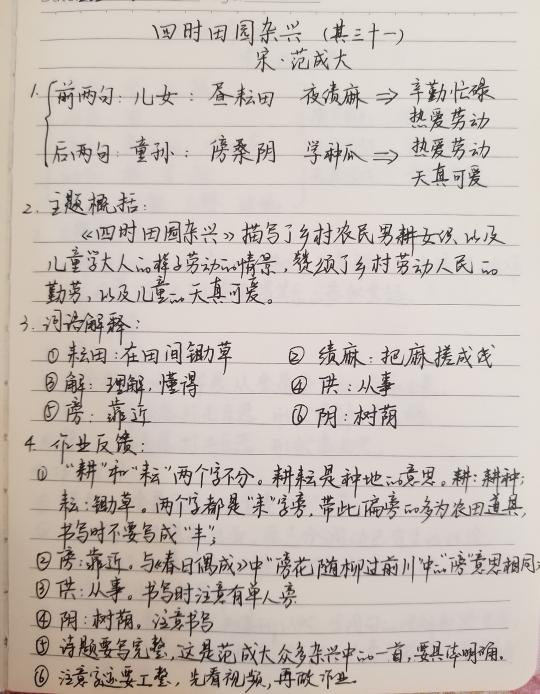 四时田园杂兴（其三十一）
宋·范成大
1. 前两句：儿女：昼耘田 夜绩麻 ⇒ 辛勤忙碌
热爱劳动
后两句：童孙：傍桑阴 学种瓜 ⇒ 热爱劳动
天真可爱
2. 主题概括：
《四时田园杂兴》描写了乡村农民男耕女织，以及
儿童学大人的样子劳动的情景，赞颂了乡村劳动人民的
勤劳，以及儿童的天真可爱。
3. 词语解释：
① 耘田：在田间锄草 ② 绩麻：把麻搓成线
③ 解：理解，懂得 ④ 供：从事
⑤ 傍：靠近 ⑥ 阴：树荫
4. 作业反馈：
① "耕"和"耘"两个字不分。耕耘是种地的意思。耕：耕种；
耘：锄草。两个字都是"耒"字旁，带此偏旁的多为农田道具，
书写时不要写成"丰"；
② 傍：靠近。与《春日偶成》中"傍花随柳过前川"中的"傍"意思相同；
③ 供：从事。书写时注意有单人旁
④ 阴：树荫，注意书写
⑤ 诗题要写完整，这是范成大众多杂兴中的一首，要具体明确。
⑥ 注意字迹要工整，先看视频，再做作业